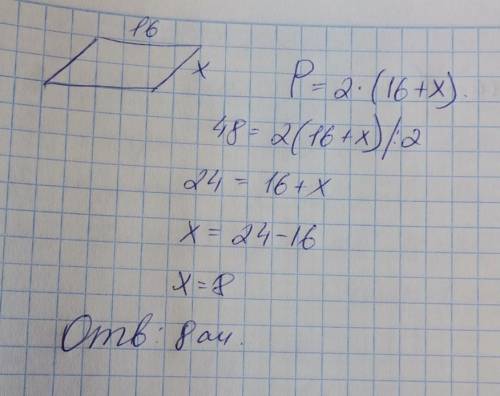 16
x
P = 2 · (16 + x).
48 = 2(16 + x) /: 2
24 = 16 + x
x = 24 - 16
x = 8
Отв: 8 см.